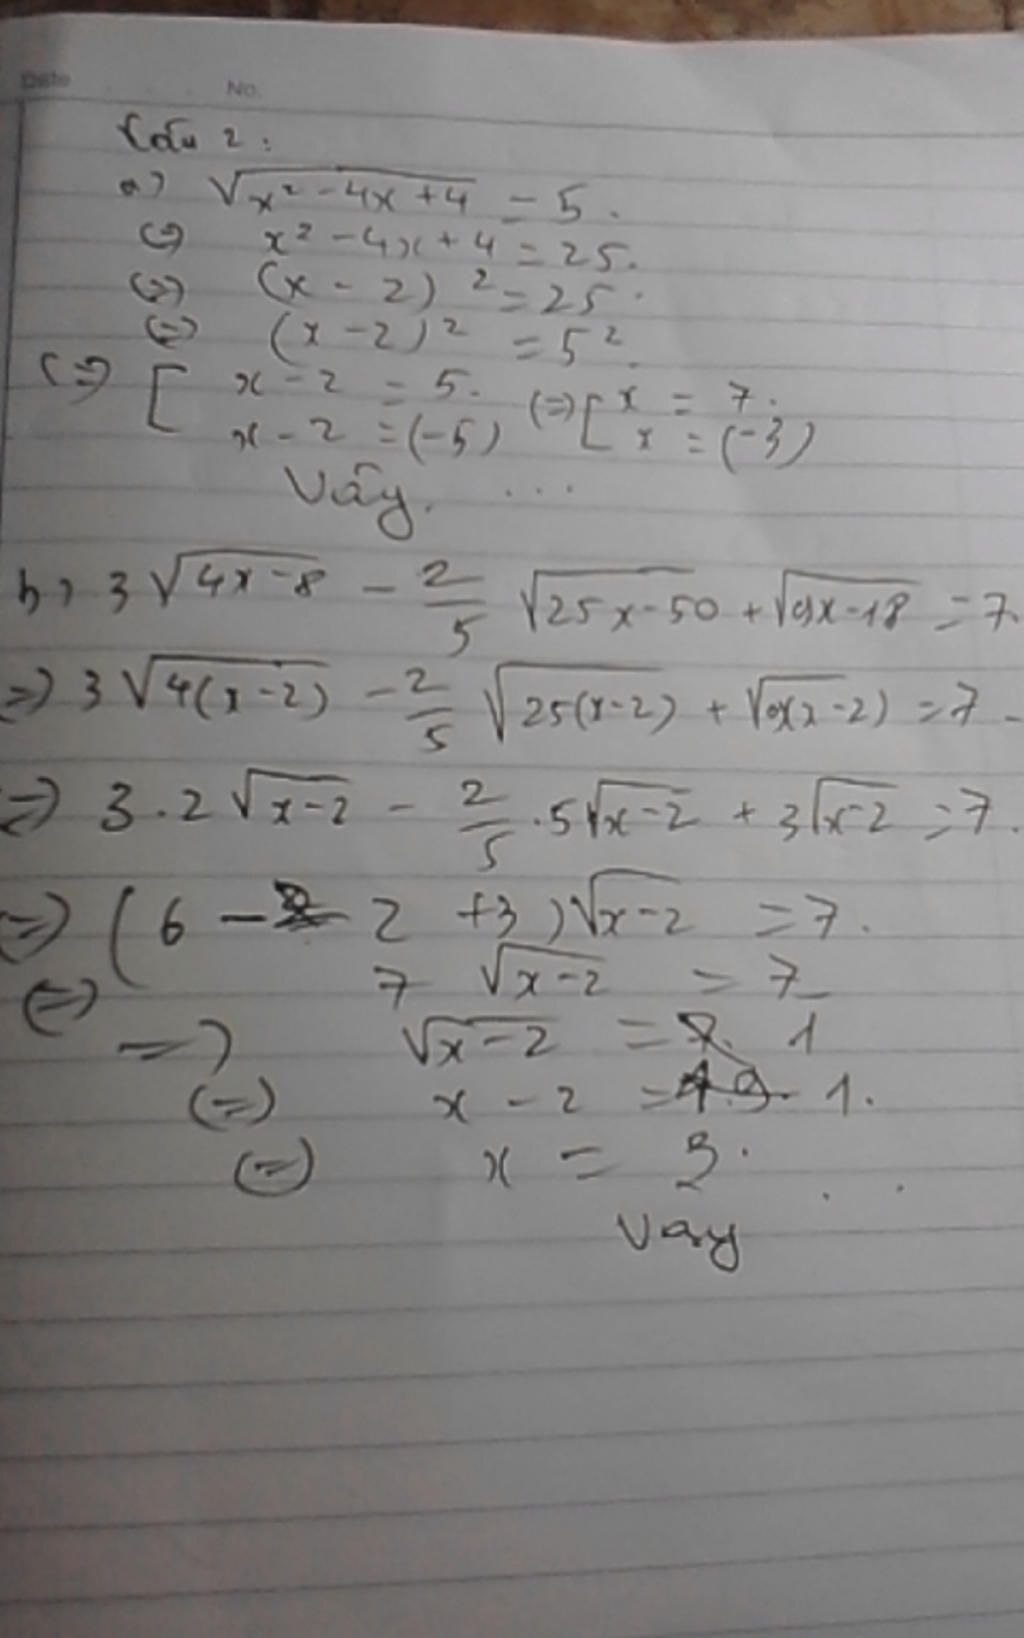 Date No.
Câu 2 :
a) √(x² - 4x + 4) = 5.
(=) x² - 4x + 4 = 25.
(=) (x - 2)² = 25.
(=) (x - 2)² = 5².
(=) [ x - 2 = 5. (=) [ x = 7.
x - 2 = (-5) x = (-3)
Vậy. ...
b, 3√(4x-8) - 2/5 √(25x-50) + √(9x-18) = 7.
=) 3√(4(x-2)) - 2/5 √(25(x-2)) + √(9(x-2)) = 7.
=) 3.2√(x-2) - 2/5 .5√(x-2) + 3√(x-2) = 7.
=) (6 - 2 + 3)√(x-2) = 7.
(=) 7 √(x-2) = 7
=) √(x-2) = 1
(=) x - 2 = 1.
(=) x = 3.
Vay . .